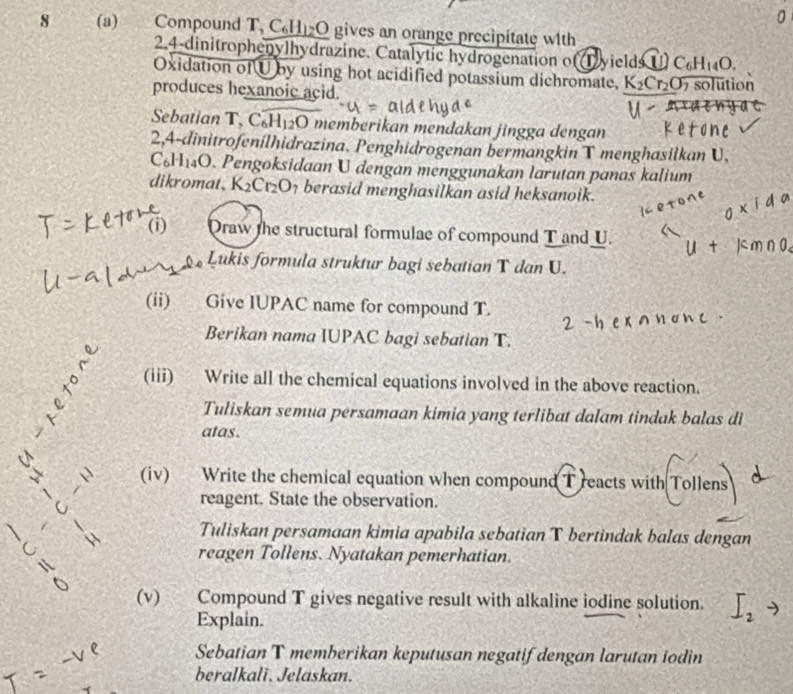 8 (a) Compound T, C₆H₁₂O gives an orange precipitate with
2,4-dinitrophenylhydrazine. Catalytic hydrogenation of T yields U, C₆H₁₄O.
Oxidation of U by using hot acidified potassium dichromate, K₂Cr₂O₇ solution
produces hexanoic acid.
-u = aldehyde
U -
Ketone ✓
Sebatian T, C₆H₁₂O memberikan mendakan jingga dengan
2,4-dinitrofenilhidrazina. Penghidrogenan bermangkin T menghasilkan U,
C₆H₁₄O. Pengoksidaan U dengan menggunakan larutan panas kalium
dikromat, K₂Cr₂O₇ berasid menghasilkan asid heksanoik.
T = Ketone
ketone
oxida
(i) Draw the structural formulae of compound T and U.
u + kmno
Lukis formula struktur bagi sebatian T dan U.
(ii) Give IUPAC name for compound T.
2-hexanone.
Berikan nama IUPAC bagi sebatian T.
(iii) Write all the chemical equations involved in the above reaction.
Tuliskan semua persamaan kimia yang terlibat dalam tindak balas di
atas.
(iv) Write the chemical equation when compound T reacts with Tollens
reagent. State the observation.
Tuliskan persamaan kimia apabila sebatian T bertindak balas dengan
reagen Tollens. Nyatakan pemerhatian.
(v) Compound T gives negative result with alkaline iodine solution. I₂ →
Explain.
T = -ve
Sebatian T memberikan keputusan negatif dengan larutan iodin
beralkali. Jelaskan.